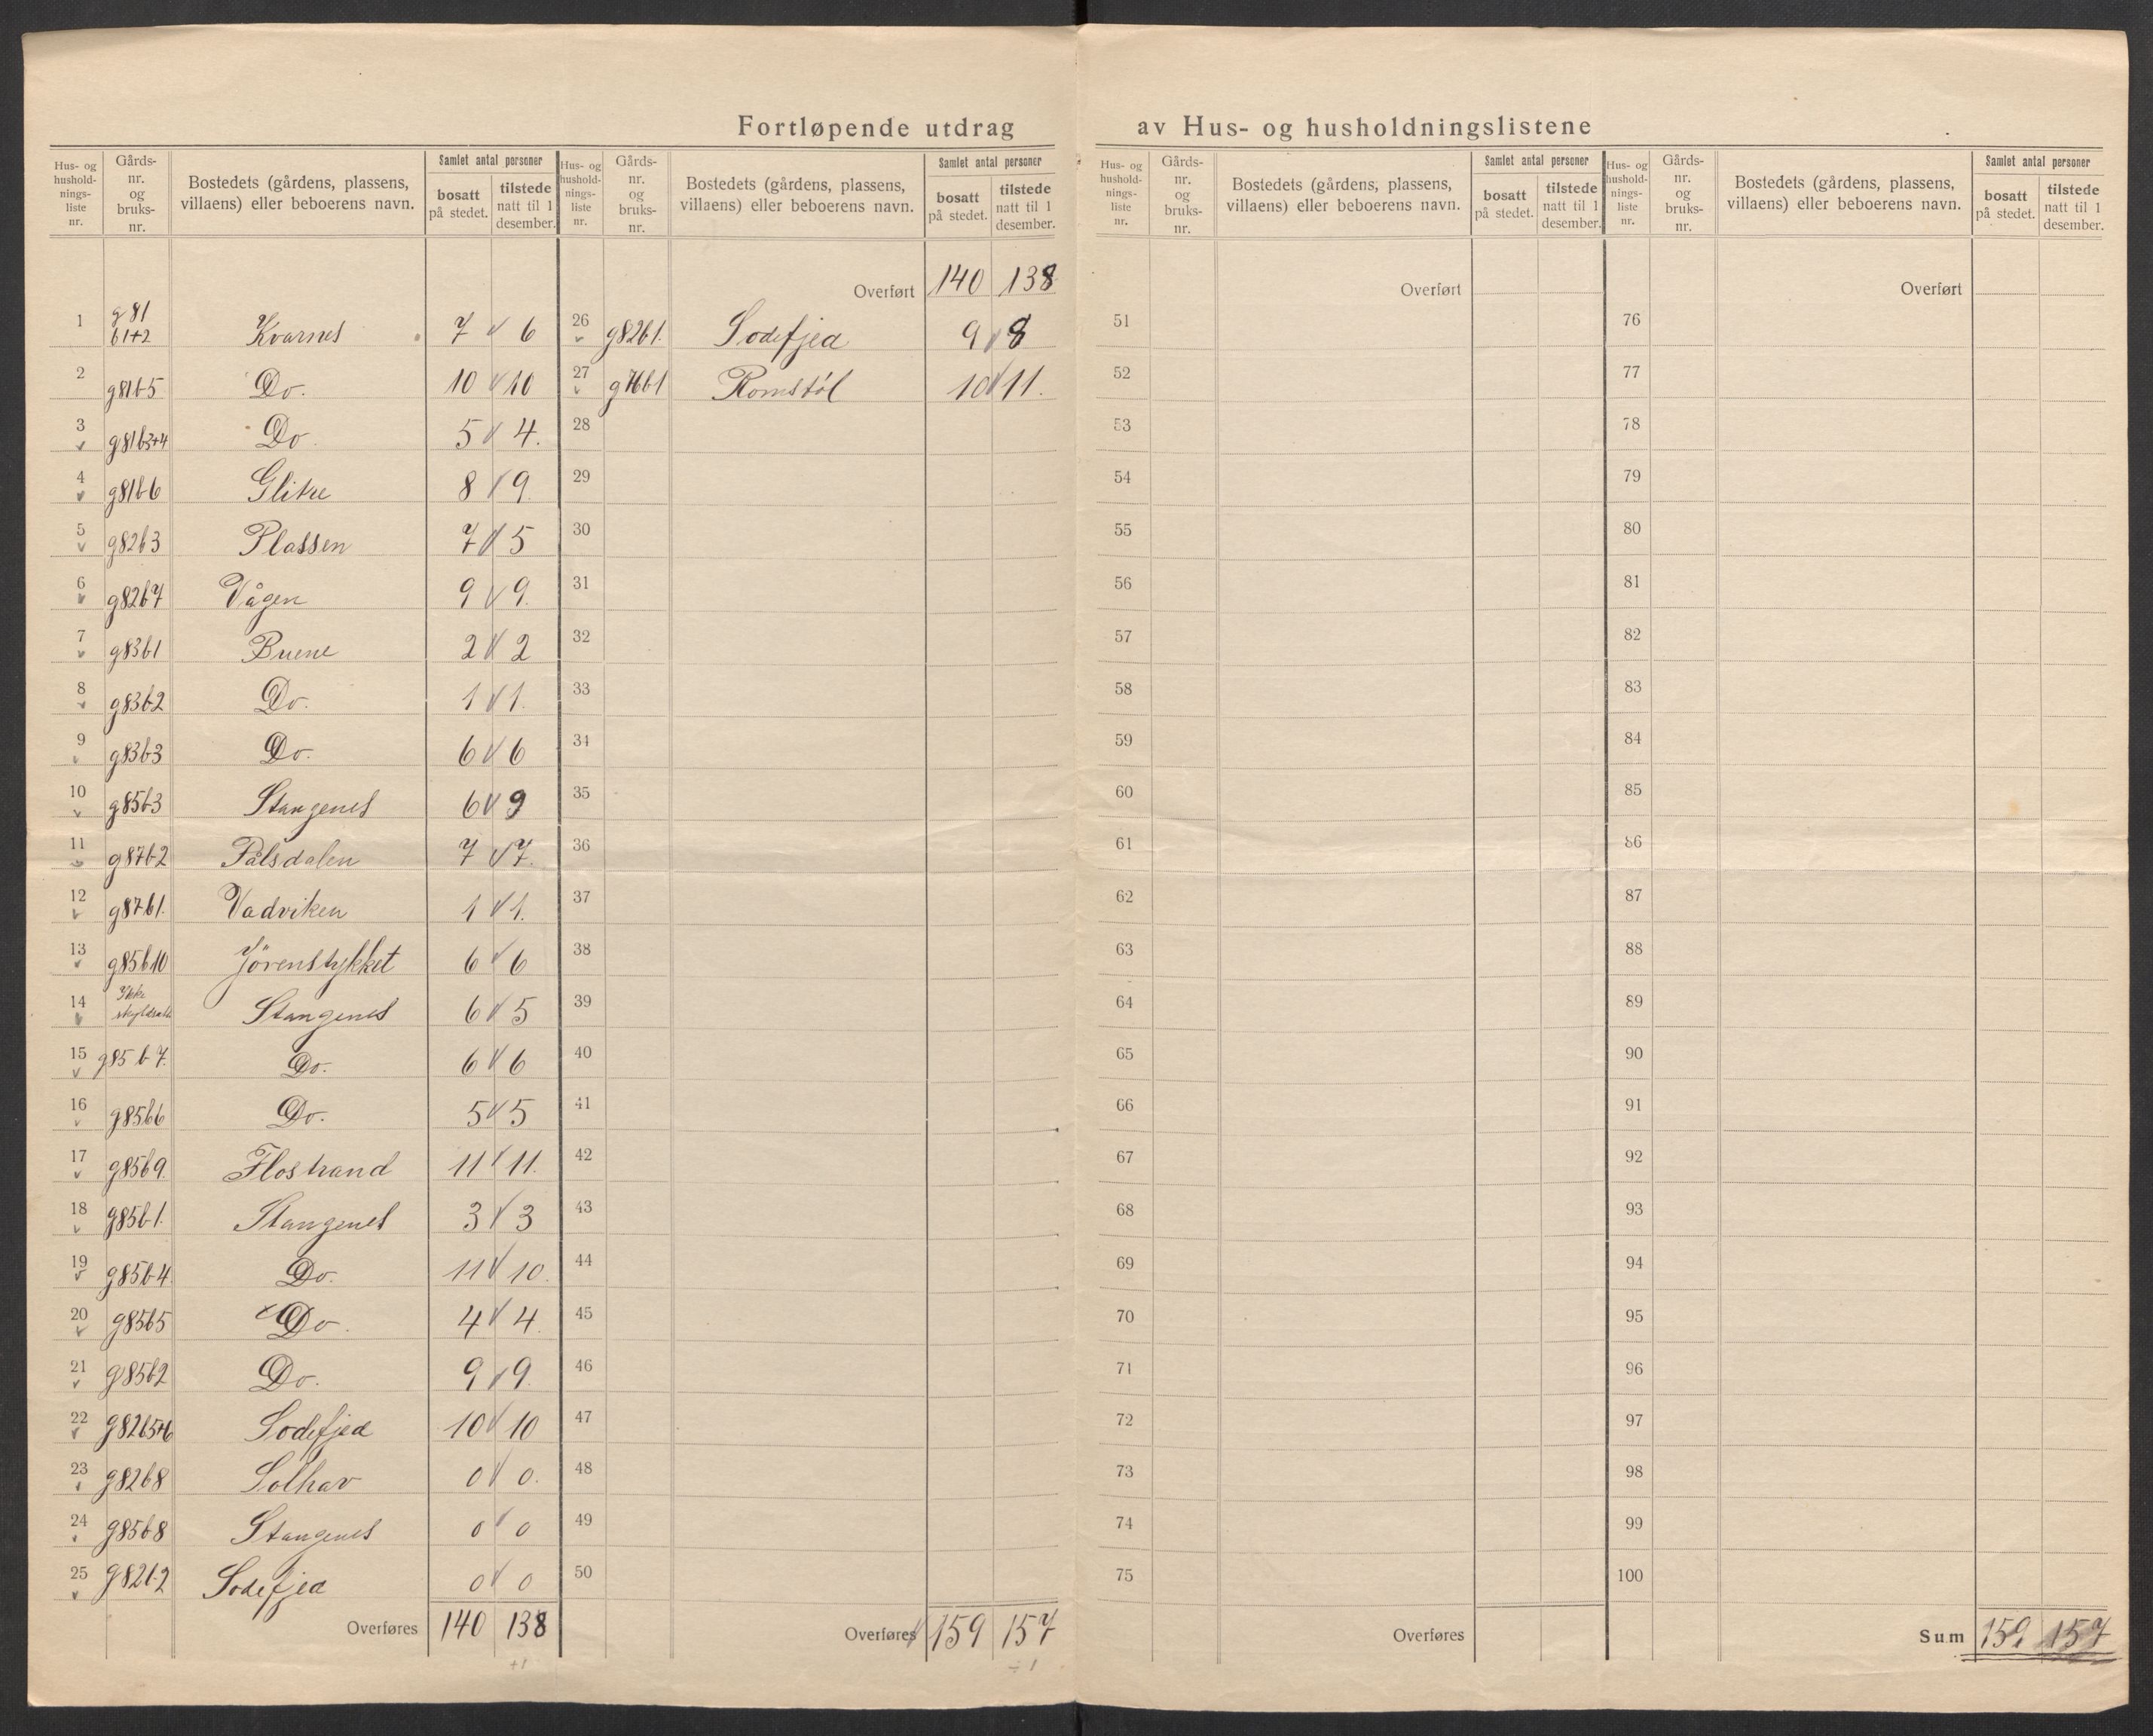 Fortløpende utdrag av Hus- og husholdningslistene
Hus- og husholdningsliste nr. | Gårds-nr. og bruks-nr. | Bostedets (gårdens, plassens, villaens) eller beboerens navn. | Samlet antal personer | bosatt på stedet. | tilstede natt til 1 desember.
1 g81 b1+2 Kvarnes 7 6
2 g81b5 Do. 10 10
3 g81b3+4 Do. 5 4.
4 g81b6 Glitre 8 9
5 g82b3 Plassen 7 5
6 g82b7 Vågen 9 9.
7 g83b1 Buene 2 2
8 g83b2 Do. 1 1.
9 g83b3 Do. 6 6
10 g85b3 Stangenes 6 9
11 g87b2 Pålsdalen 7 7.
12 g87b1. Vadviken 1 1.
13 g85b10 Jörenstykket 6 6
14 Ikke Stangenes 6 5
15 g85 b7. Do. 6 6
16 g85b6 Do. 5 5
17 g85b9. Flostrand 11 11.
18 g85b1. Stangenes 3 3
19 g85b4. Do. 11 10.
20 g85b5 Do. 4 4.
21 g85b2 Do. 9 9.
22 g82b5+6 Sodefjed 10 10
23 g82b8 Solhav 0 0.
24 g85b8 Stangenes 0 0
25 g82b2 Sodefjed 0 0
Overføres 140 138
+1
Hus- og husholdningsliste nr. | Gårds-nr. og bruks-nr. | Bostedets (gårdens, plassens, villaens) eller beboerens navn. | Samlet antal personer | bosatt på stedet. | tilstede natt til 1 desember.
Overført 140 138
26 g82b1. Sodefjed 9 8
27 g76b1 Romstøl 10 11.
28
29
30
31
32
33
34
35
36
37
38
39
40
41
42
43
44
45
46
47
48
49
50
Overføres 159 157
÷1
Hus- og husholdnings-liste nr. | Gårds-nr. og bruks-nr. | Bostedets (gårdens, plassens, villaens) eller beboerens navn. | Samlet antal personer | bosatt på stedet. | tilstede natt til 1 desember.
Overført
51
52
53
54
55
56
57
58
59
60
61
62
63
64
65
66
67
68
69
70
71
72
73
74
75
Overføres
Hus- og husholdnings-liste nr. | Gårds-nr. og bruks-nr. | Bostedets (gårdens, plassens, villaens) eller beboerens navn. | Samlet antal personer | bosatt på stedet. | tilstede natt til 1 desember.
Overført
76
77
78
79
80
81
82
83
84
85
86
87
88
89
90
91
92
93
94
95
96
97
98
99
100
Sum 159 157